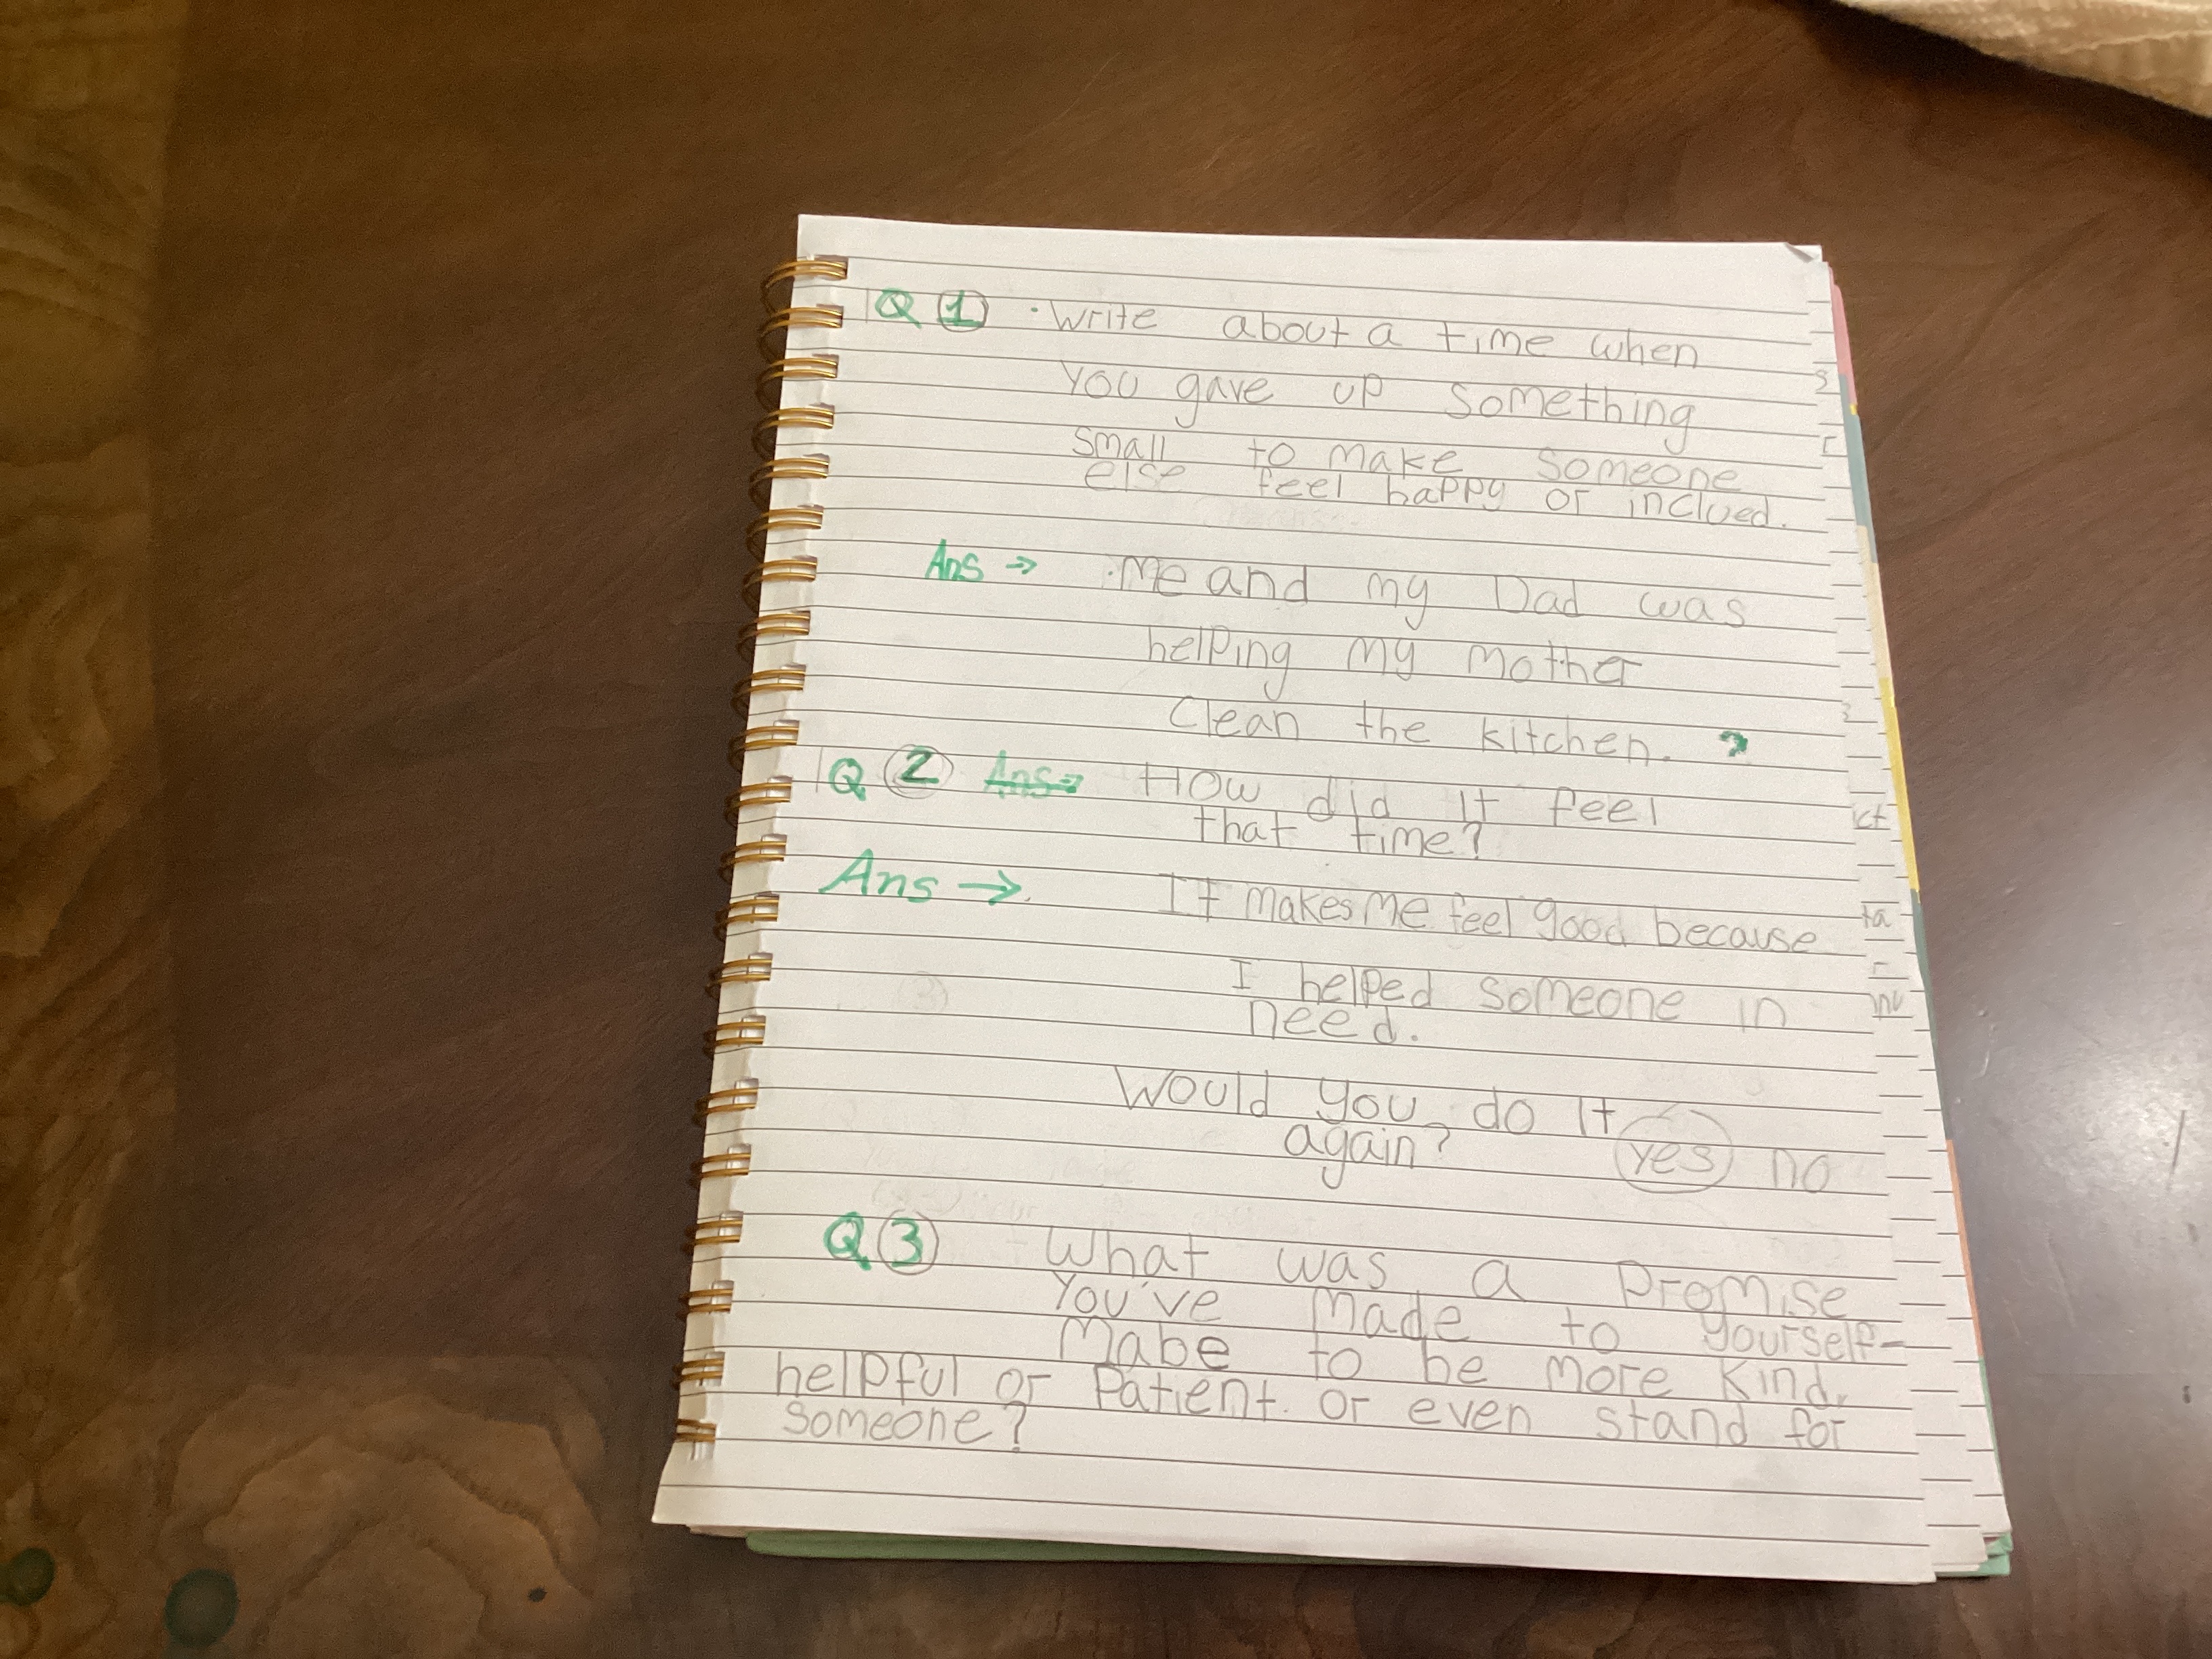 Q 1 . Write about a time when
you gave up something
small to make someone
else feel happy or inclued.
Ans → . Me and my Dad was
helping my mother
Clean the kitchen.
Q 2 Ans → How did it feel
that time?
Ans → It makes me feel good because
I helped someone in
need.
Would you do it
again? yes no
Q 3 What was a promise
You've made to yourself-
Mabe to be more kind,
helpful or patient. or even stand for
someone?